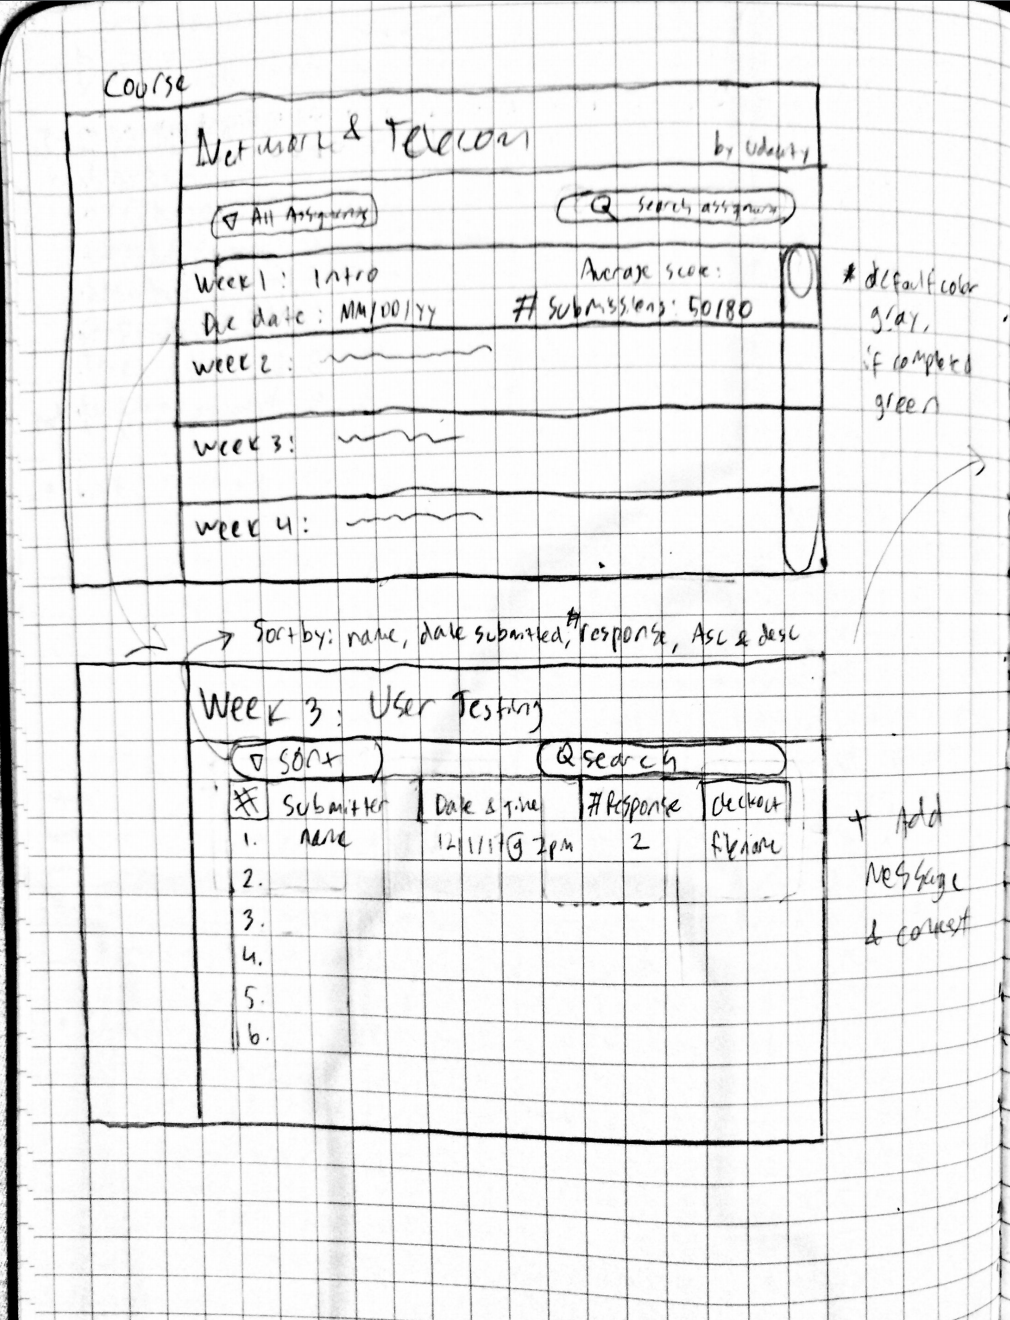 Course
Network & Telecom
by Udacity
▽ All Assignments
Q Search assignment
Week 1: Intro
Average score:
Due date: MM/DD/YY
# Submissions: 50/80
* default color
gray,
if completed
green
Week 2:
Week 3:
Week 4:
Sort by: name, date submitted, # response, Asc & desc
Week 3: User Testing
▽ Sort
Q Search
# Submitter Date & Time # Response Checkout
1. name 12/1/17 @ 2pm 2 filename
2.
3.
4.
5.
6.
+ Add
Message
&